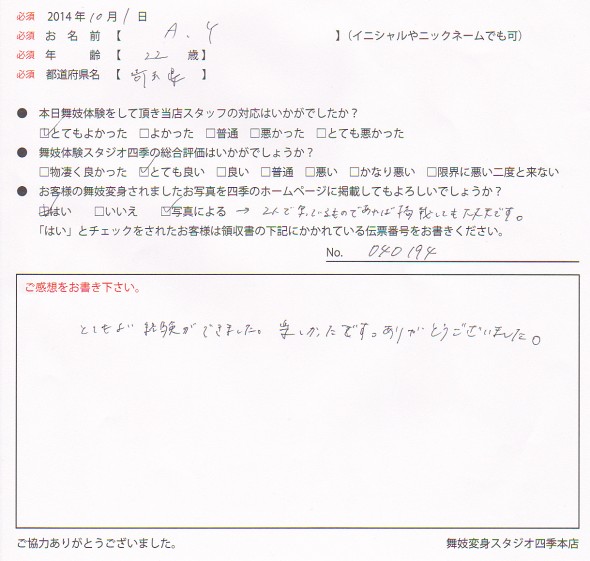 必須 2014年10月1日
必須 お 名 前 【 A . Y 】(イニシャルやニックネームでも可)
必須 年 齢 【 22 歳】
必須 都道府県名 【 埼玉県 】
● 本日舞妓体験をして頂き当店スタッフの対応はいかがでしたか?
☑とてもよかった □よかった □普通 □悪かった □とても悪かった
● 舞妓体験スタジオ四季の総合評価はいかがでしょうか?
□物凄く良かった ☑とても良い □良い □普通 □悪い □かなり悪い □限界に悪い二度と来ない
● お客様の舞妓変身されましたお写真を四季のホームページに掲載してもよろしいでしょうか?
☑はい □いいえ ☑写真による → 2人で写っているものであれば掲載しても大丈夫です。
「はい」とチェックをされたお客様は領収書の下記にかかれている伝票番号をお書きください。
No. 040194
ご感想をお書き下さい。
とてもよい経験ができました。楽しかったです。ありがとうございました。
ご協力ありがとうございました。 舞妓変身スタジオ四季本店